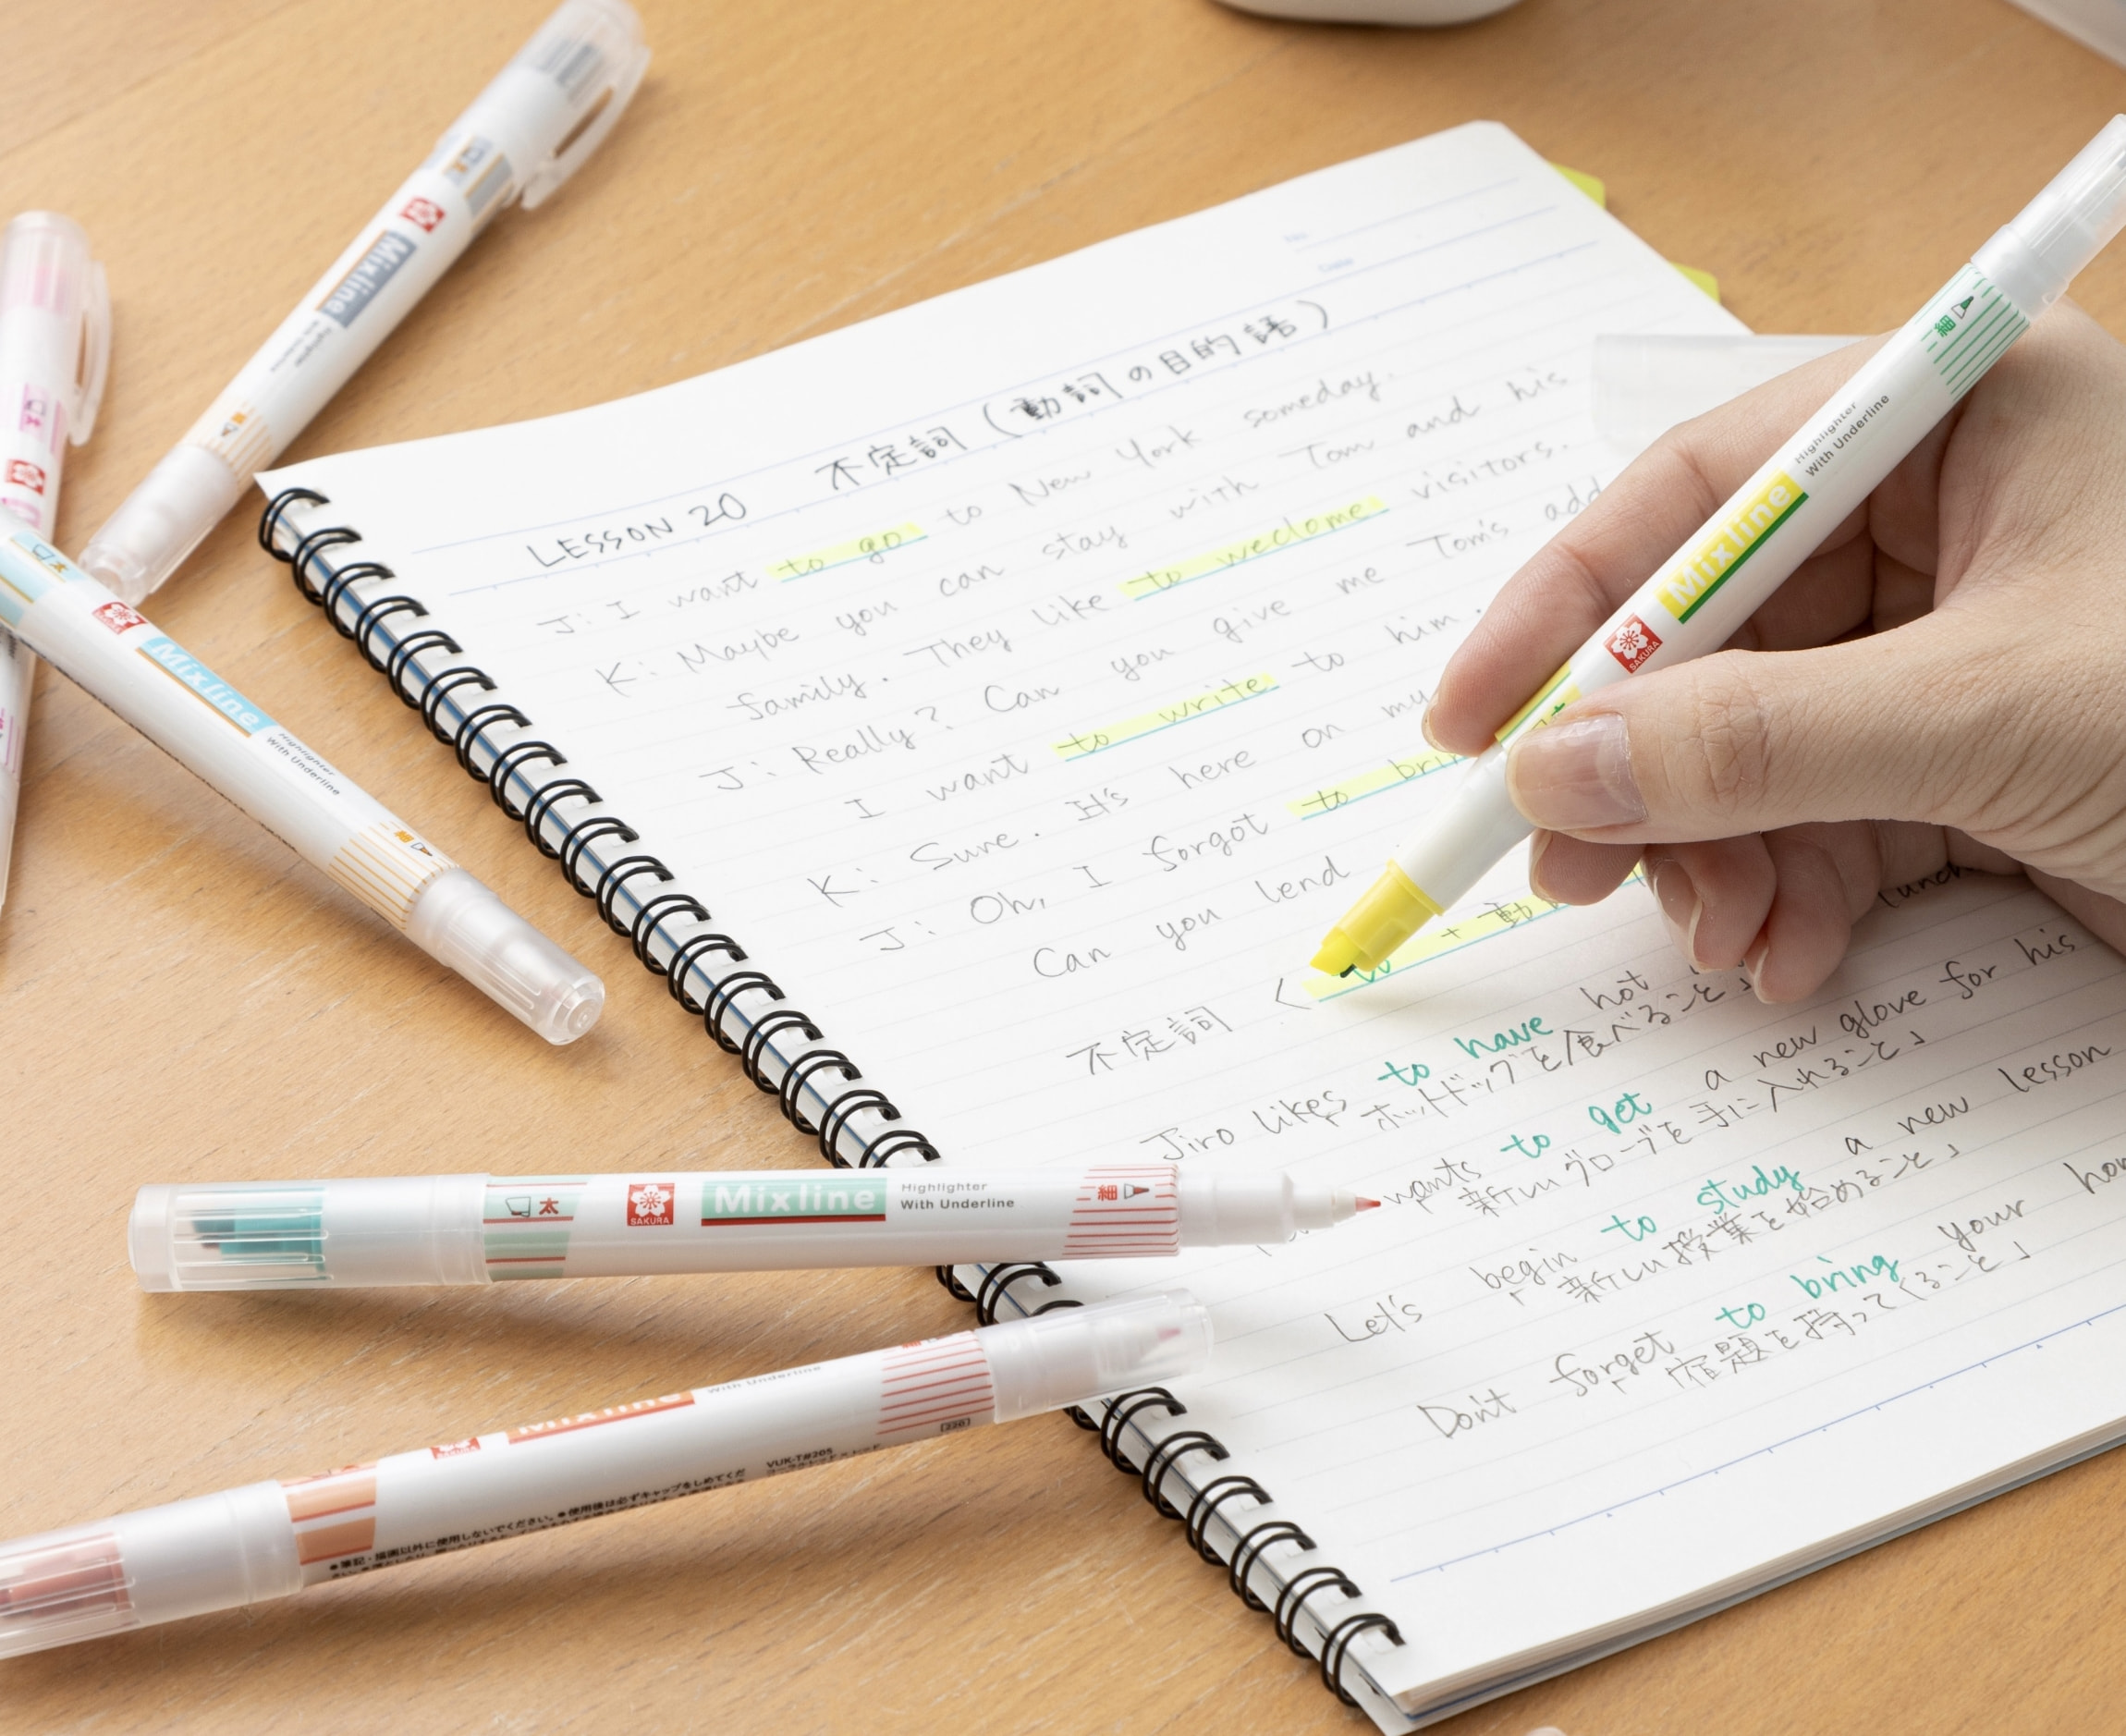 LESSON 20 不定詞(動詞の目的語)
J: I want to go to New York someday.
K: Maybe you can stay with Tom and his
family. They like to weclome visitors.
J: Really? Can you give me Tom's add
I want to write to him.
K: Sure. It's here on my
J: Oh, I forgot to brin
Can you lend
不定詞 < to + 動
Jiro likes to have hot lunch
ホットドッグを食べること」
wants to get a new glove for his
新しいグローブを手に入れること」
Let's begin to study a new lesson
「新しい授業を始めること」
Don't forget to bring your hom
「宿題を持ってくること」
細
Highlighter
With Underline
Mixline
SAKURA
Mixline
細
Mixline
Highlighter
With Underline
細
太
SAKURA
Mixline
Highlighter
With Underline
細
Mixline
With Underline
VUK-T#205
●筆記・描画以外に使用しないでください。●使用後は必ずキャップをしめてくだ